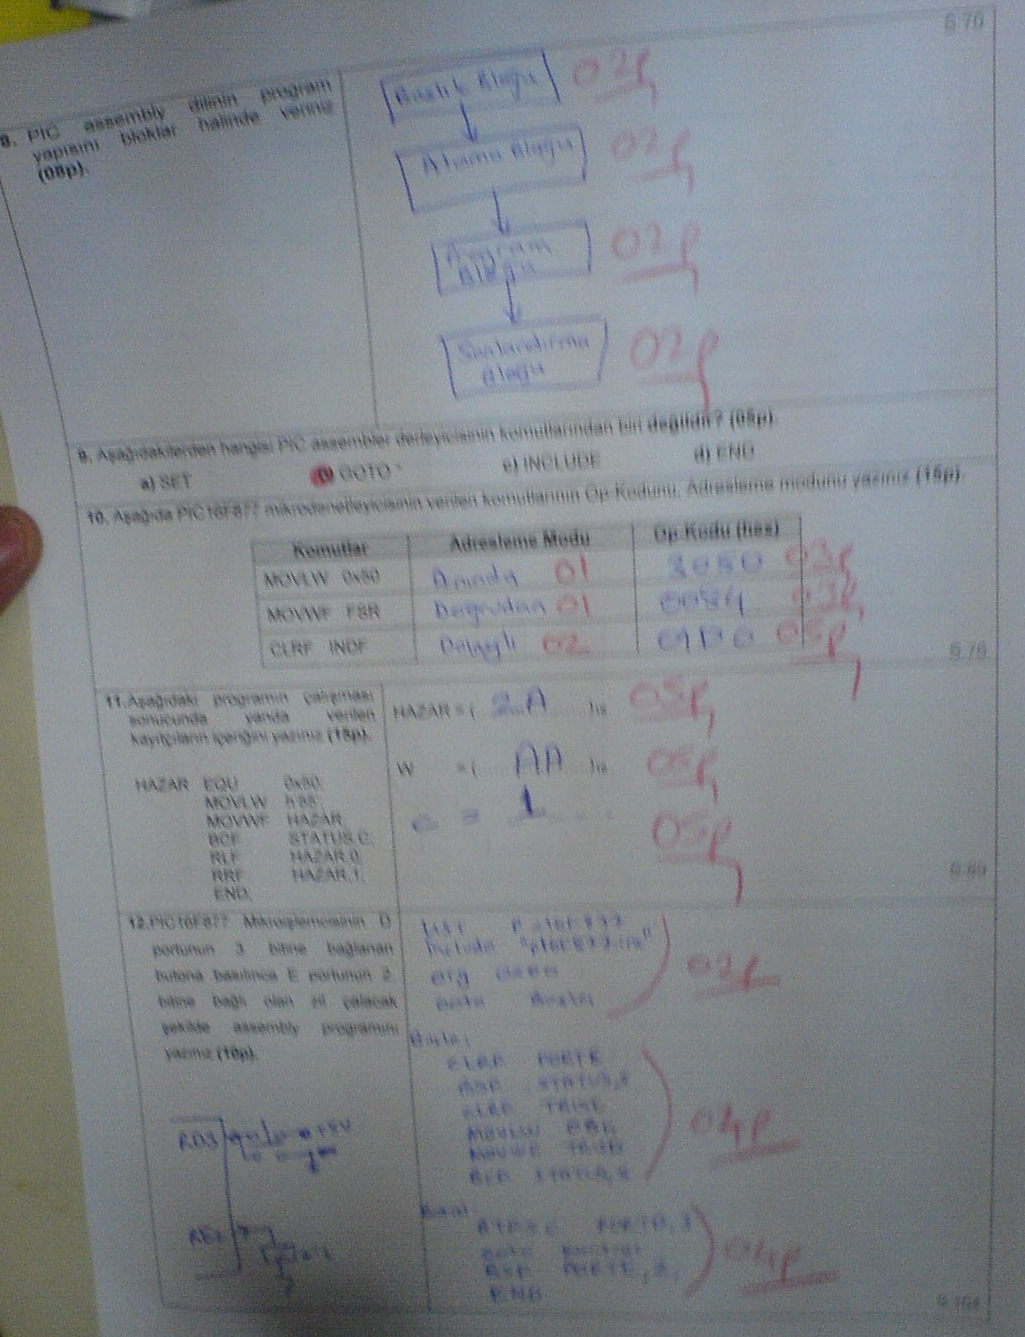 8. PIC assembly dilinin program
yapısını bloklar halinde veriniz
(08p).
Başlık Bloğu 02p
Atama Bloğu 02p
Program Bloğu 02p
Sonlandırma Bloğu 02p
9. Aşağıdakilerden hangisi PIC assembler derleyicisinin komutlarından biri değildir? (05p).
a) SET b) GOTO c) INCLUDE d) END
10. Aşağıda PIC16F877 mikrodenetleyicisinin verilen komutlarının Op-Kodunu, Adresleme modunu yazınız (15p).
Komutlar Adresleme Modu Op-Kodu (hex)
MOVLW 0x50 Anında 01 3050 03p
MOVWF FSR Doğrudan 01 0084 03p
CLRF INDF Dolaylı 02 05p
11.Aşağıdaki programın çalışması
sonucunda yanda verilen
kayıtçıların içeriğini yazınız (15p).
HAZAR = ( 2A )₁₆ 05p
W = ( AA )₁₆ 05p
c = 1 05p
HAZAR EQU
MOVLW
MOVWF HAZAR
BCF STATUS,C
RLF HAZAR,0
RRF HAZAR,1
END
12.PIC16F877 Mikroişlemcisinin D
portunun 3. bitine bağlanan
butona basılınca E portunun 2.
bitine bağlı olan zil çalacak
şekilde assembly programını
yazınız (10p).
LIST P=16F877
include "p16F877.inc"
org
goto Basla
02p
Basla:
CLRF PORTE
BSF STATUS,5
CLRF TRISE
MOVLW
MOVWF TRISD
BCF STATUS,5
04p
BTFSC PORTD,3
goto
BSF PORTE,2
END
04p
RD3 +5V
RE2